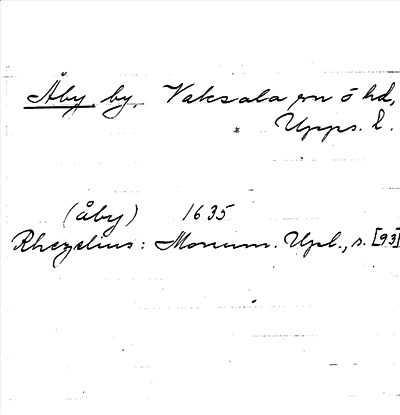 Åby, by, Vaksala sn o hd,
Upps. l.
(åby) 1635
Rhezelius: Monum. Upl., s. [93]